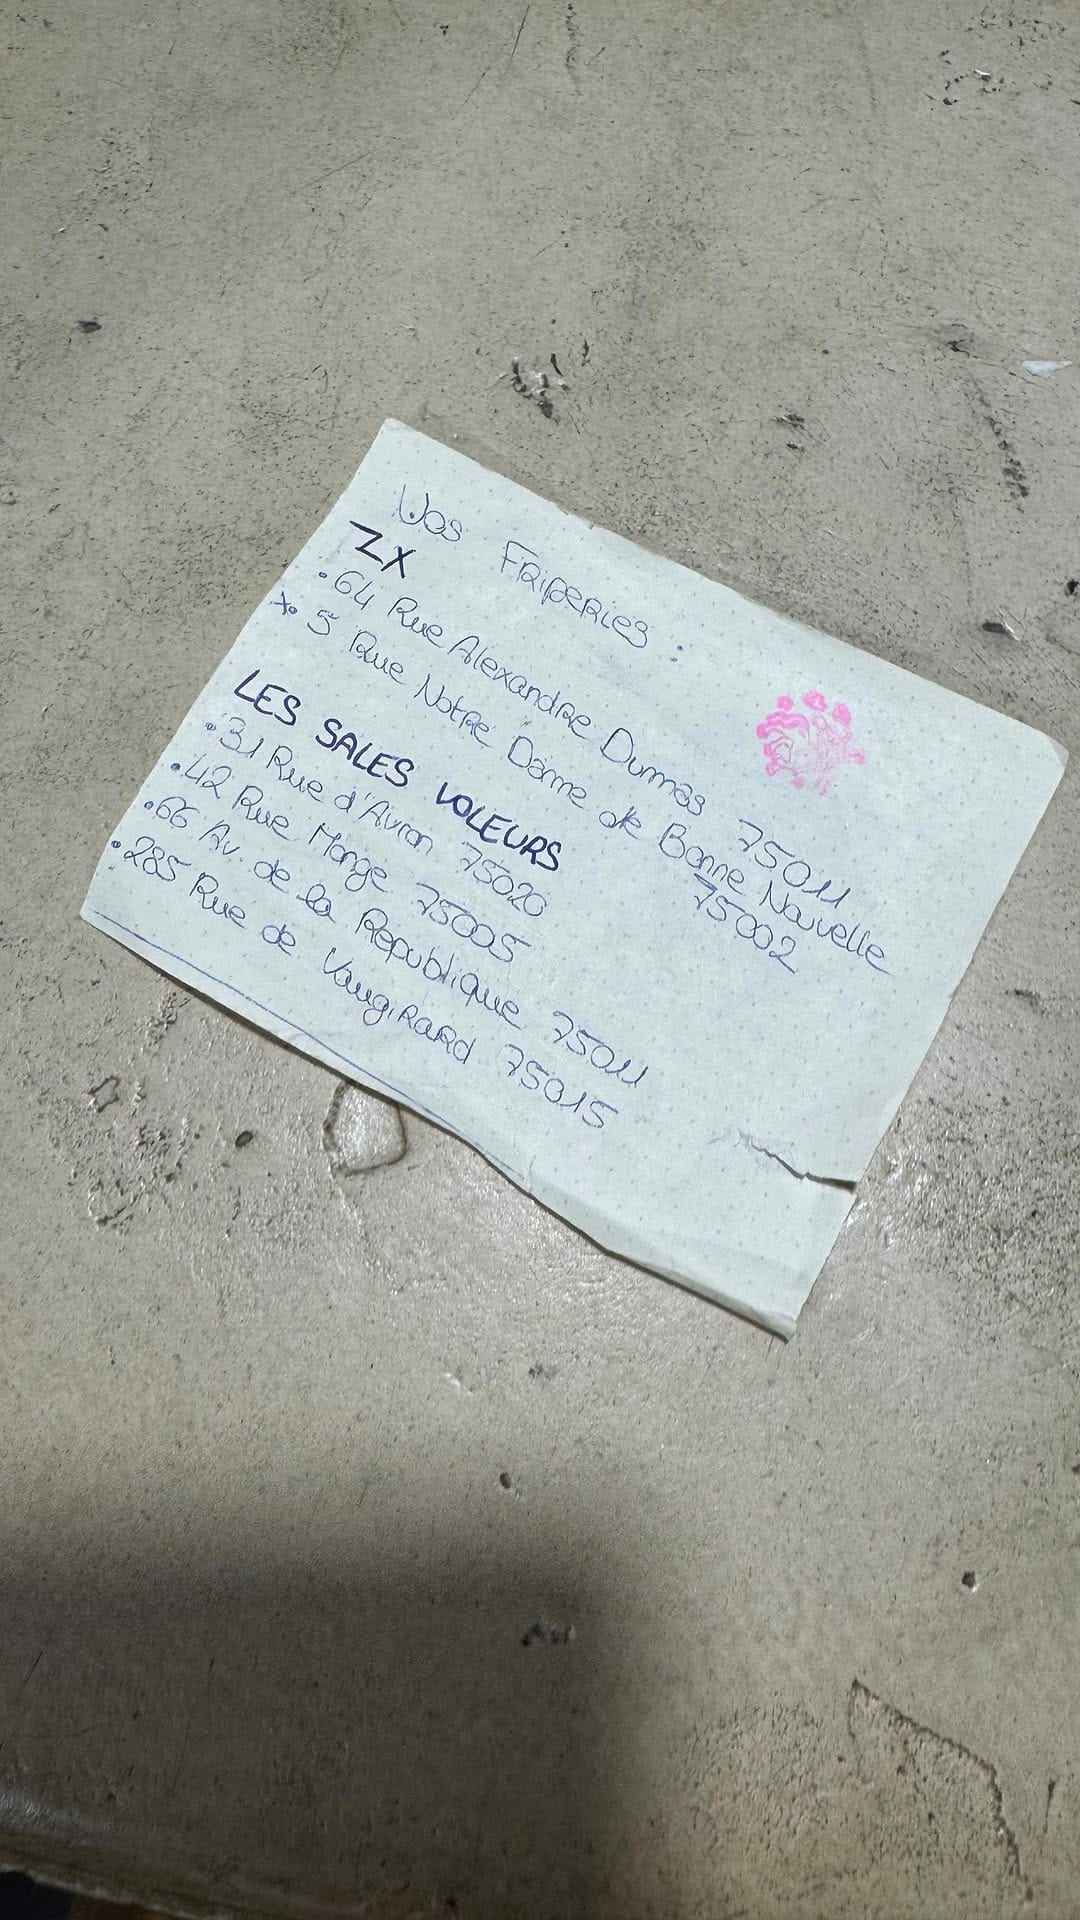 Vos Friperies :
ZX
• 64 Rue Alexandre Dumas 75011
x• 5 Rue Notre Dame de Bonne Nouvelle
75002
LES SALES VOLEURS
• 31 Rue d'Avron 75020
• 42 Rue Monge 75005
• 66 Av. de la Republique 75011
• 285 Rue de Vaugirard 75015